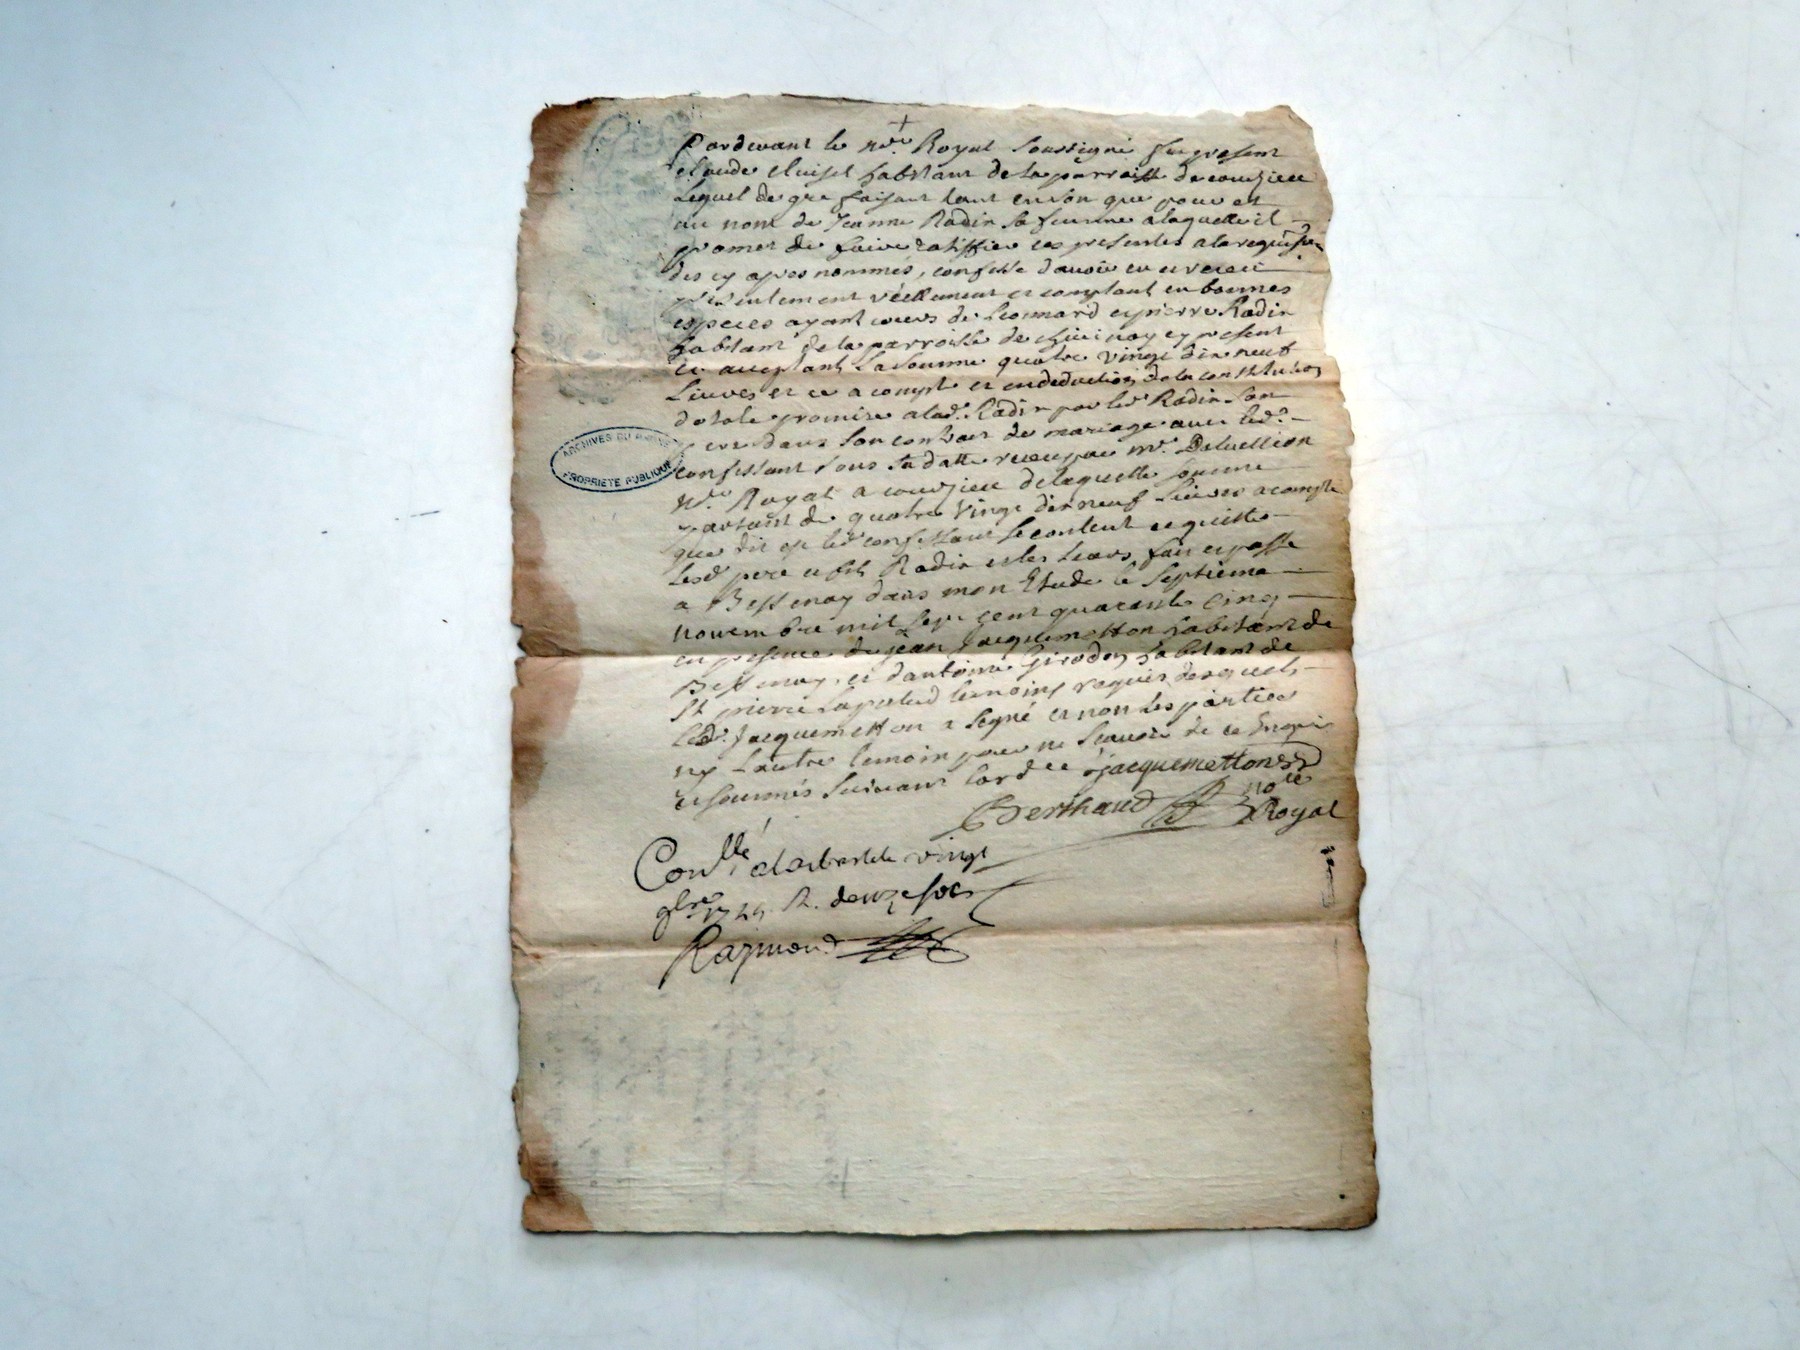 Pardevant le no.re Royal soussigné fut present
claude cluisel habitant de la parroisse de courzieu
Lequel de gre faisant tant en son que pour et
au nom de Jeanne Radix sa femme a laquelle il
promet de faire ratiffier ces presentes a la
des cy apres nommés, confesse davoir eu et receu
presentement reellement et comptant en bonnes
especes ayant cours de Leonnard et pierre Radix
habitant de la parroisse de present
et acceptant La somme quatre vingt dix neuf
Livres et ce a compte et en deduction de la constitution
dotale promise a lad. Radix par led. Radix son
pere dans son contrat de mariage avec led.
confessant sous sa datte receu par m.e
No.re Royal a courzieu de laquelle somme
partant de quatre vingt dix neuf Livres a compte
que dit est led. confessant se contente et quitte
Lesd. pere et fils Radix et les leurs, fait et passé
a Bessenay dans mon Etude le septieme
novembre mil sept cent quarante cinq
en presence de jean jacquemetton habitant de
Bessenay, et dantoine Giroden habitant de
St pierre Lapalud temoins requis desquels
led. Jacquemetton a signé et non les parties
ny Lautre temoin pour ne scavoir de ce Enquis
et sommés suivant lord.ce jacquemetton
Berthaud no.re
Royal
Con.llé a Larbresle vingt
9bre R. douze sols
Raymond
ARCHIVES DU RHÔNE
PROPRIÉTÉ PUBLIQUE